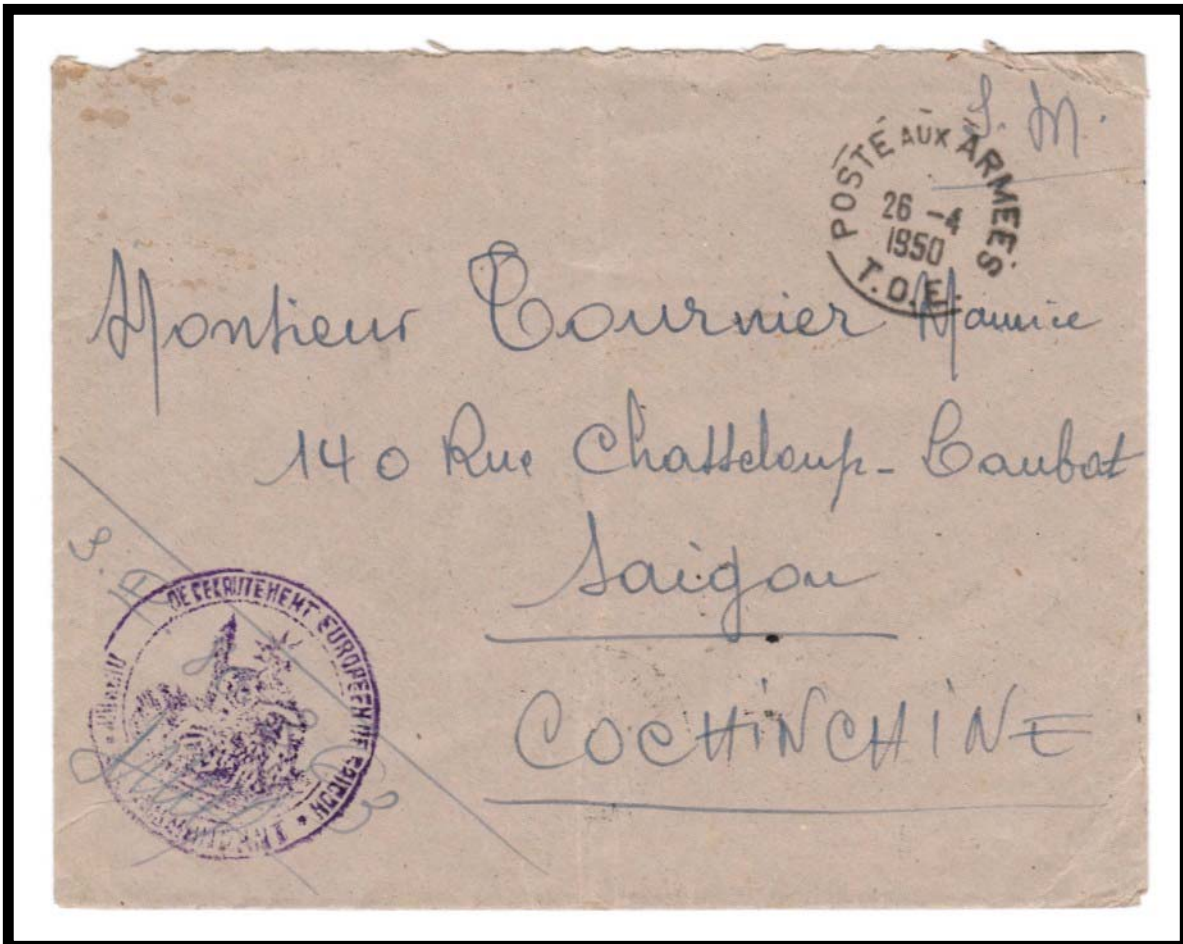 S. M.
POSTE AUX ARMEES
26 -4
1950
T.O.E.
Monsieur Tournier Maurice
140 Rue Chasseloup-Laubat
Saigon
COCHINCHINE
DE RECRUTEMENT EUROPEEN DE SAIGON